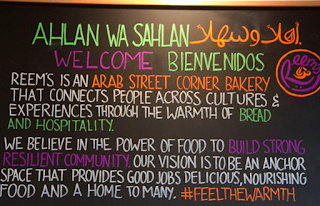 AHLAN WA SAHLAN أهلا وسهلا
WELCOME BIENVENIDOS
Reem's
REEM'S IS AN ARAB STREET CORNER BAKERY
THAT CONNECTS PEOPLE ACROSS CULTURES &
EXPERIENCES THROUGH THE WARMTH OF BREAD
AND HOSPITALITY.
WE BELIEVE IN THE POWER OF FOOD TO BUILD STRONG
RESILIENT COMMUNITY. OUR VISION IS TO BE AN ANCHOR
SPACE THAT PROVIDES GOOD JOBS DELICIOUS, NOURISHING
FOOD AND A HOME TO MANY. #FEELTHEWARMTH